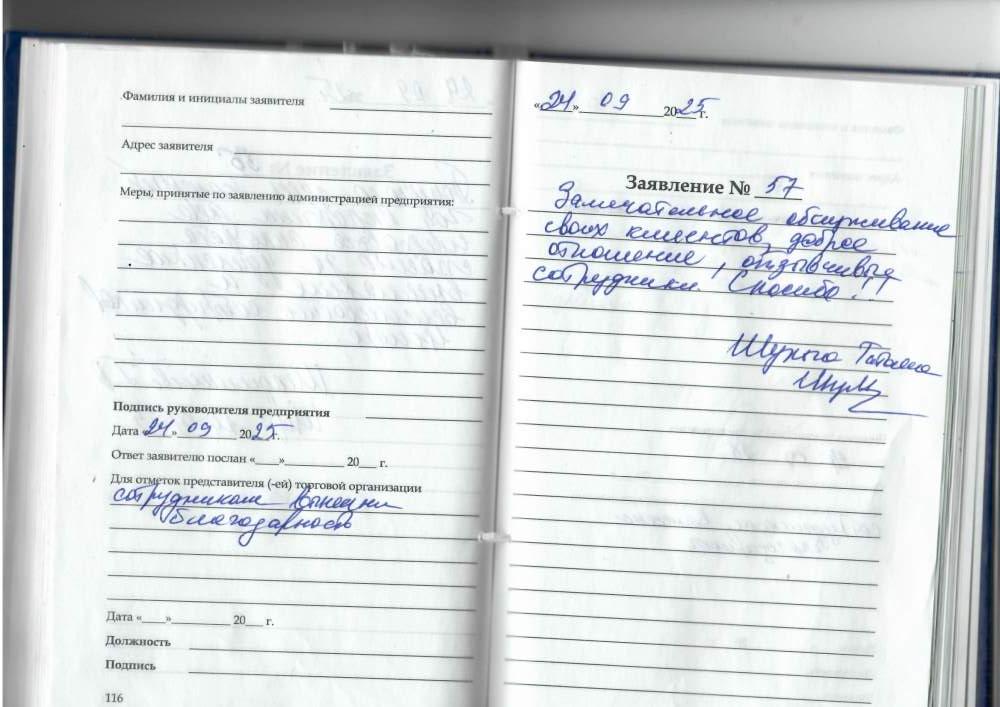 Фамилия и инициалы заявителя
Адрес заявителя
Меры, принятые по заявлению администрацией предприятия:
Подпись руководителя предприятия
Дата «24» 09 2025г.
Ответ заявителю послан «___»__________ 20___ г.
Для отметок представителя (-ей) торговой организации
сотрудникам вынесли
благодарность
Дата «___»__________ 20___ г.
Должность
Подпись
116
«24» 09 2025 г.
Заявление № 57
Замечательное обслуживание
своих клиентов, доброе
отношение, отзывчивые
сотрудники. Спасибо!!
Татьяна